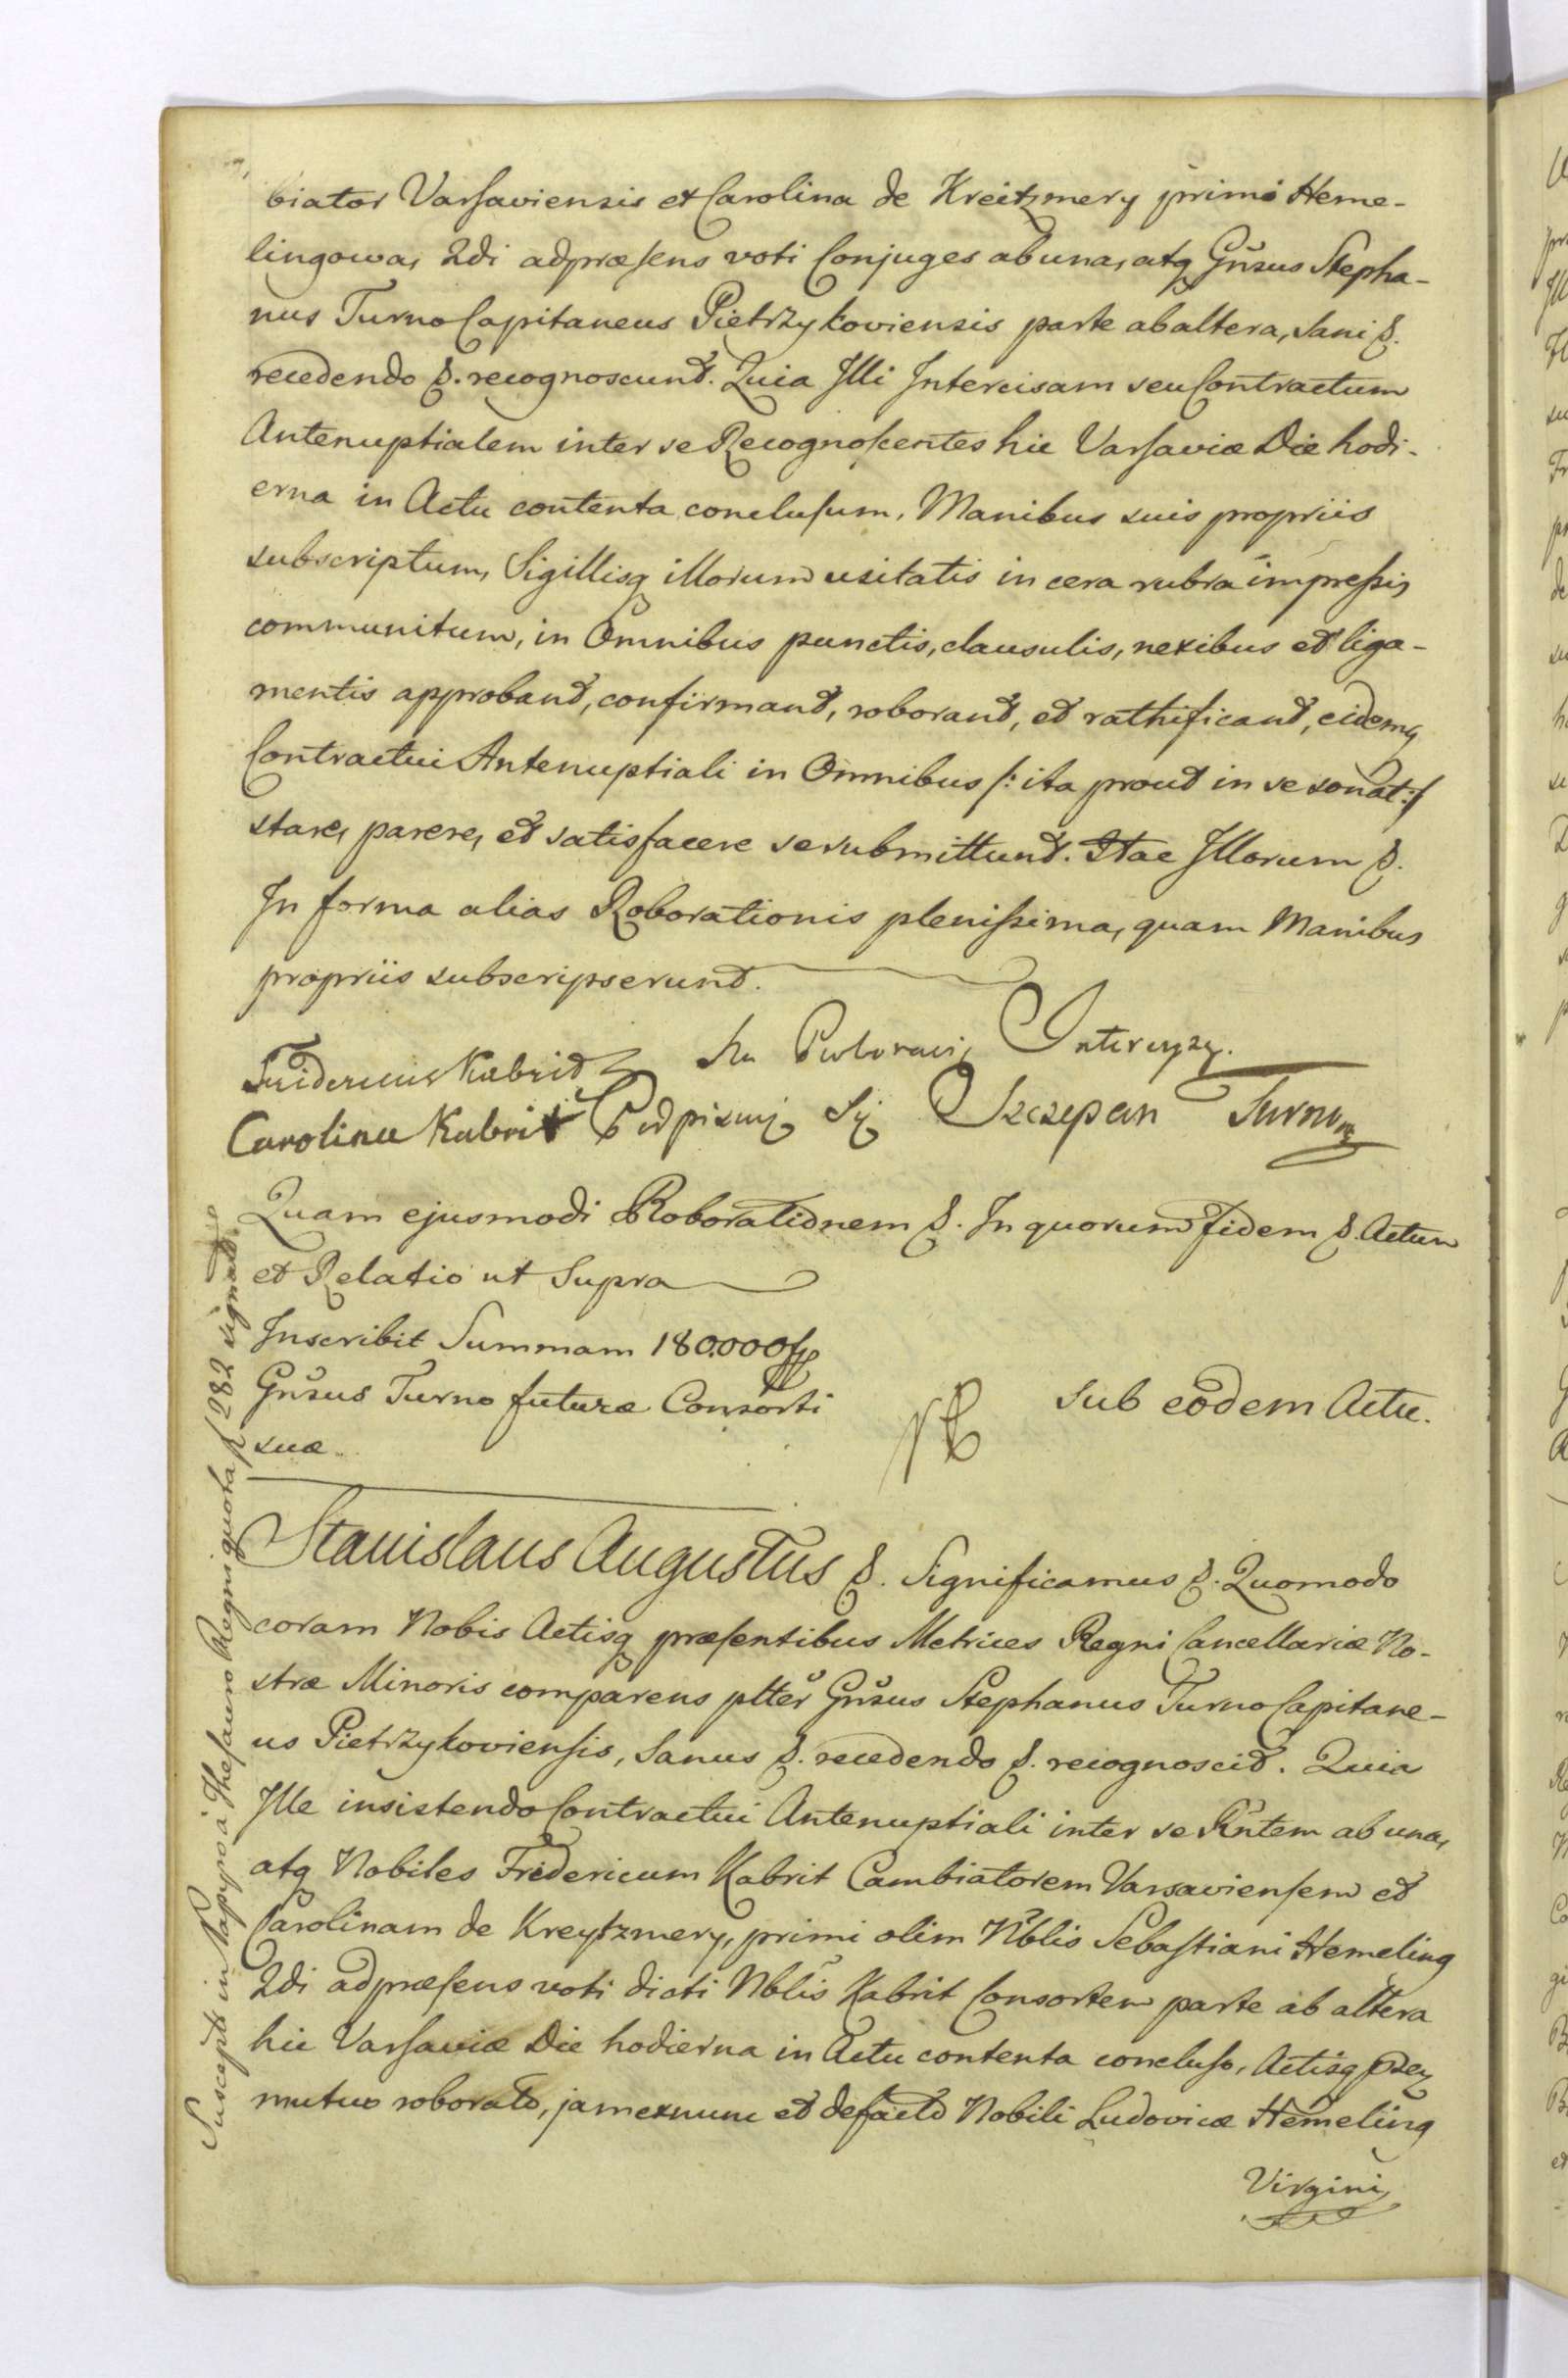 biator Varsaviensis et Carolina de Kreitzmery primo Heme-
lingowa, 2di adpræsens voti Conjuges ab una, atq Gnsus Stepha-
nus Turno Capitaneus Pietrzykoviensis parte ab altera, Sani &.
recedendo &. recognoscunt. Quia Illi Intercisam seu Contractum
Antenuptialem inter se Recognoscentes hic Varsaviæ Die hodi-
erna in Actu contenta conclusum, Manibus suis propriis
subscriptum, Sigillisq illorum usitatis in cera rubra impressis
communitum, in Omnibus punctis, clausulis, nexibus et liga-
mentis approbant, confirmant, roborant, et rathificant, eidemq
Contractui Antenuptiali in Omnibus /: ita prout in se sonat :/
stare, parere, et satisfacere se submittunt. Stae Illorum &.
In forma alias Roborationis plenissima, quam Manibus
propriis subscripserunt.
Fridericus Kabrit Na Roboracią Intercyzy.
Carolina Kabrit Podpisuię Się Szczepan Turno
Quam ejusmodi Roborationem &. In quorum fidem &. Actum
et Relatio ut Supra
Inscribit Summam 180.000 fp
Gnsus Turno futuræ Consorti
suæ
Sub eodem Actu.
Stanislaus Augustus &. Significamus &. Quomodo
coram Nobis Actisq præsentibus Metrices Regni Cancellariæ No-
stræ Minoris comparens plter Gnsus Stephanus Turno Capitane-
us Pietrzykoviensis, Sanus &. recedendo &. recognoscit. Quia
Ille insistendo Contractui Antenuptiali inter se Rntem ab una,
atq Nobiles Fridericum Kabrit Cambiatorem Varsaviensem et
Carolinam de Kreytzmery, primi olim Nblis Sebastiani Hemeling
2di adpræsens voti dicti Nblis Kabrit Consortem parte ab altera
hic Varsaviæ Die hodierna in Actu contenta concluso, Actisq
mutuo roborato, jam ex nunc et de facto Nobili Ludovicæ Hemeling
Virgini
Suscepta in Pappyro à Thesauro Regni quota p 282 signato